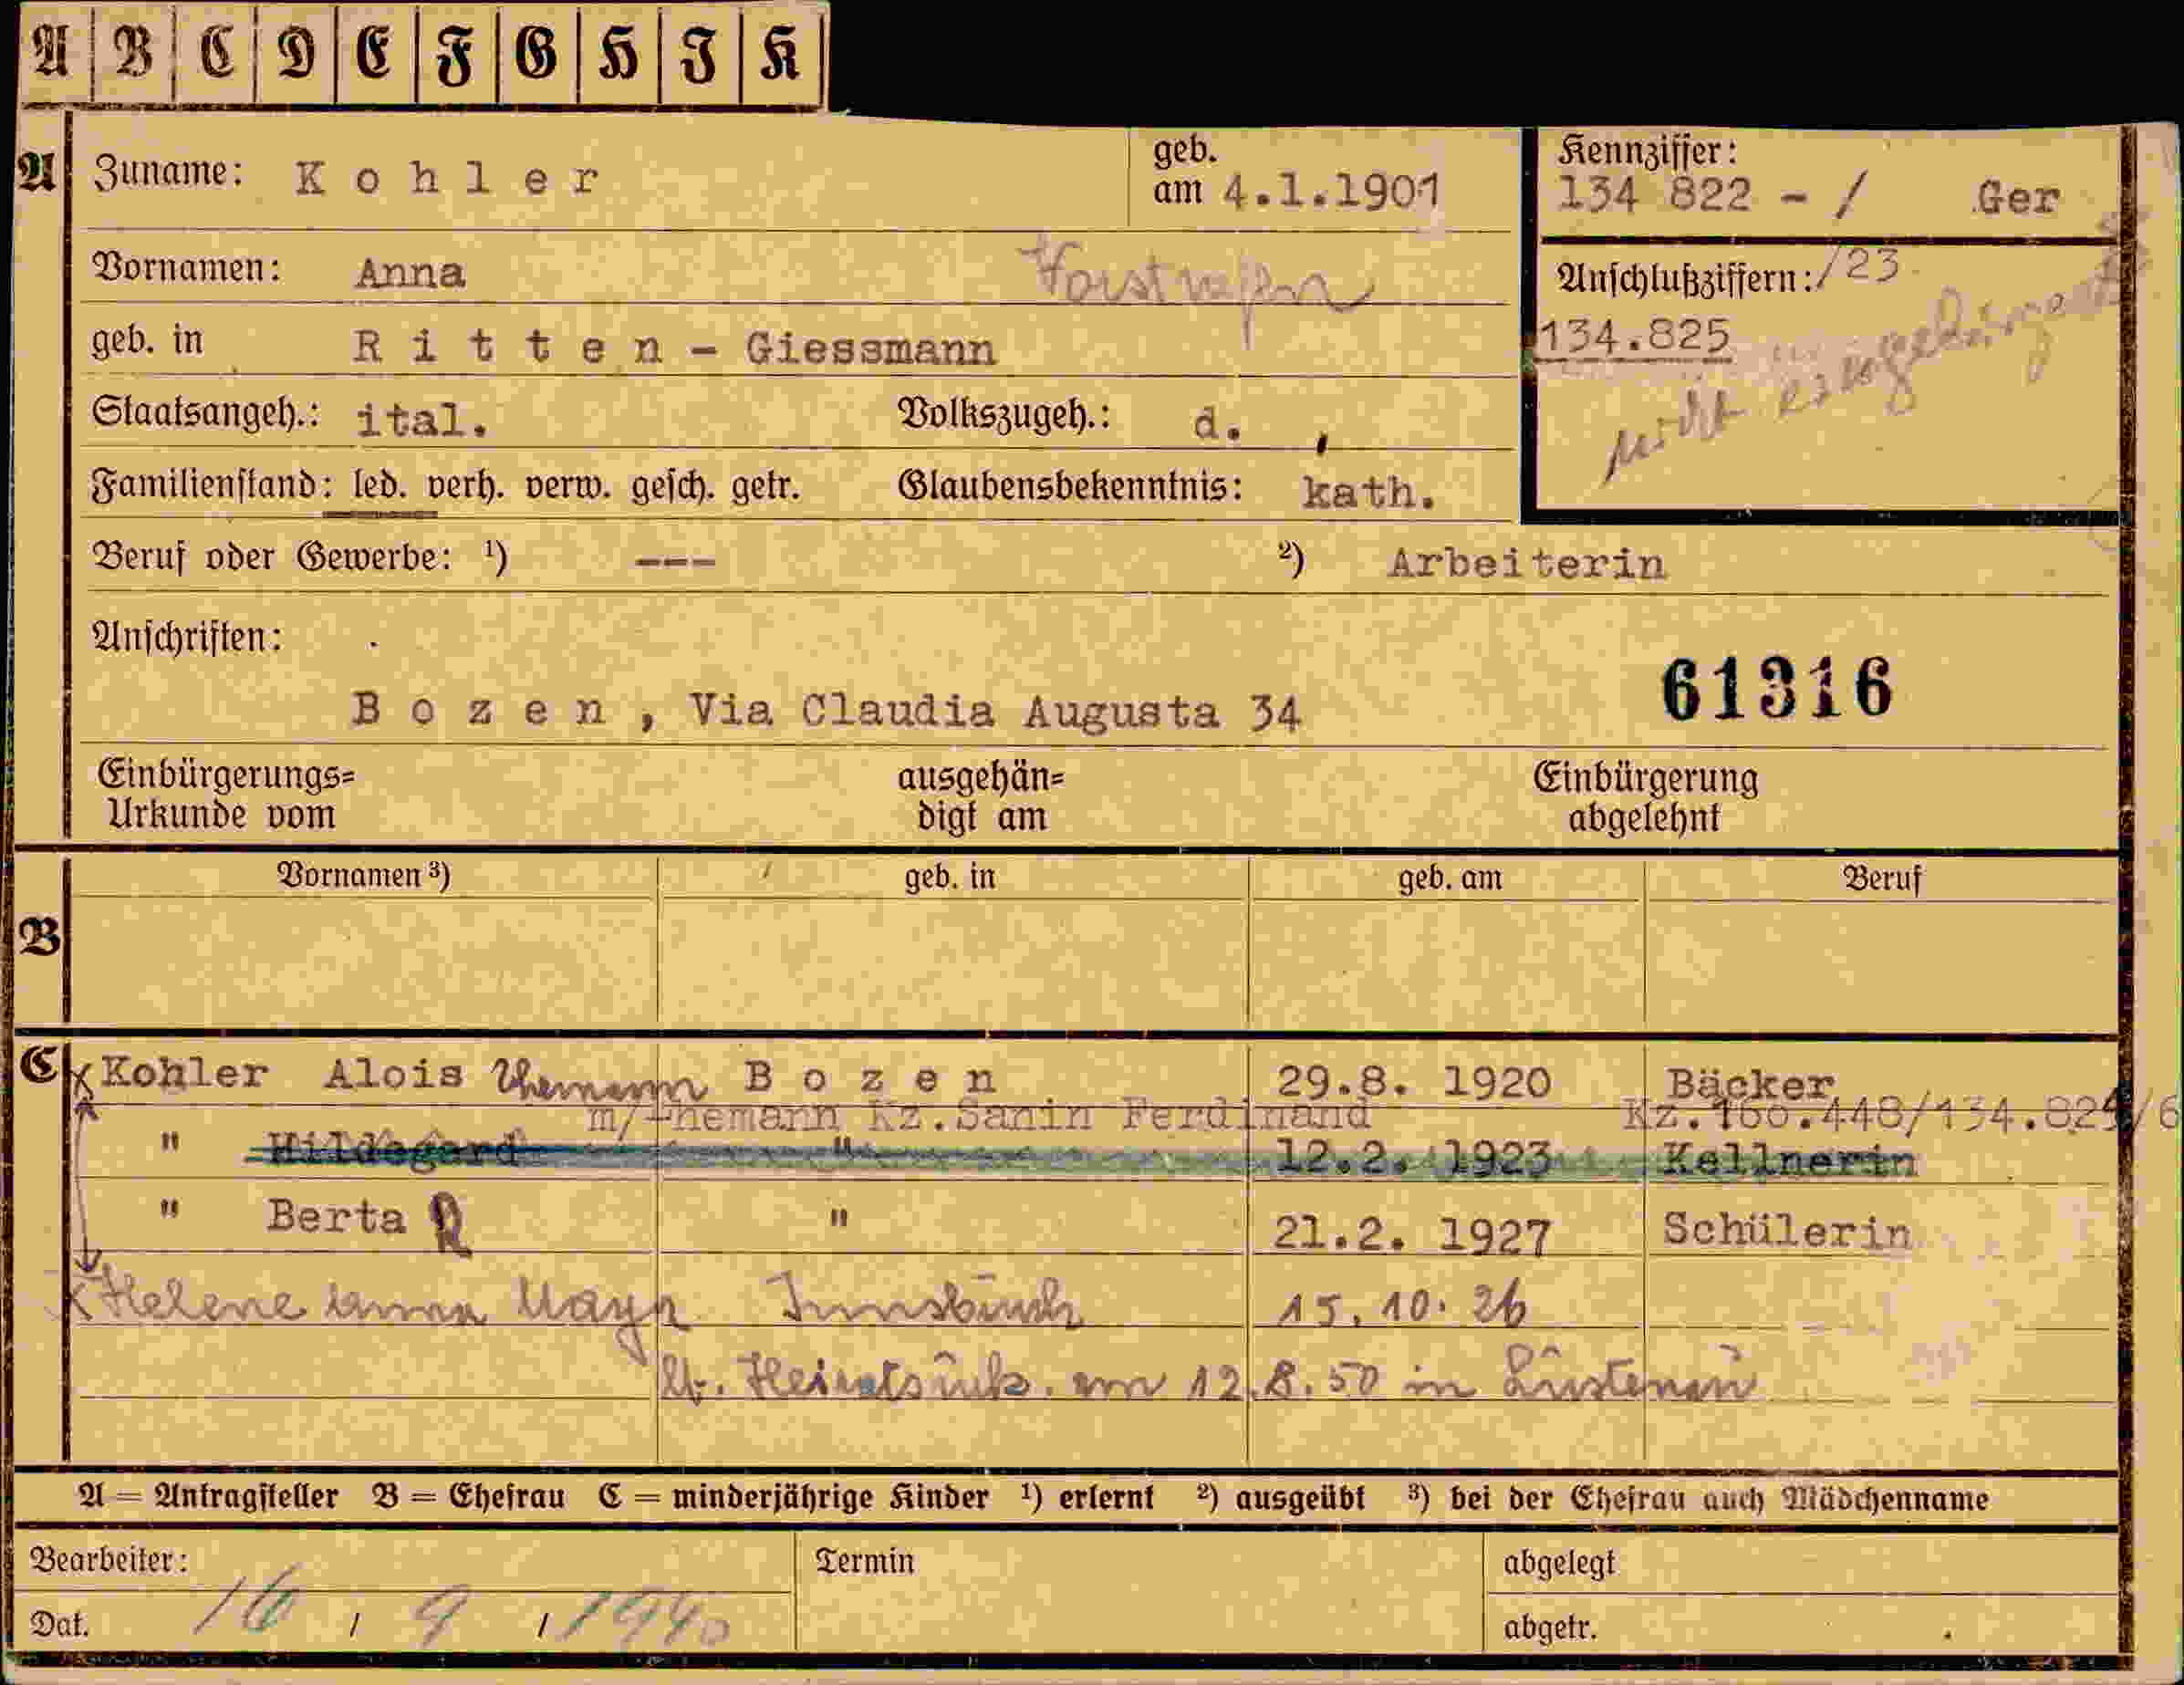 A B C D E F G H J K
A Zuname: Kohler geb. am 4.1.1901
Kennziffer: 134 822 - / Ger
Vornamen: Anna
Anschlußziffern: /23
134.825
nicht eingebürgert
geb. in Ritten - Giessmann
Staatsangeh.: ital. Volkszugeh.: d.
Familienstand: led. verh. verw. gesch. getr. Glaubensbekenntnis: kath.
Beruf oder Gewerbe: ¹) --- ²) Arbeiterin
Anschriften:
Bozen, Via Claudia Augusta 34
61316
Einbürgerungs= Urkunde vom ausgehän= digt am Einbürgerung abgelehnt
Vornamen ³) geb. in geb. am Beruf
B
C x Kohler Alois Ehemann Bozen 29.8. 1920 Bäcker
m/Ehemann Kz. Sanin Ferdinand Kz. 160.448/134.824/6
" Hildegard " 12.2. 1923 Kellnerin
" Berta R " 21.2. 1927 Schülerin
x Helene Anna Mayr Innsbruck 15.10.26
lt. Heiratsurk. am 12.8.50 in Lustenau
A = Antragsteller B = Ehefrau C = minderjährige Kinder ¹) erlernt ²) ausgeübt ³) bei der Ehefrau auch Mädchenname
Bearbeiter: Termin abgelegt
Dat. 16 / 9 / 1940 abgetr.